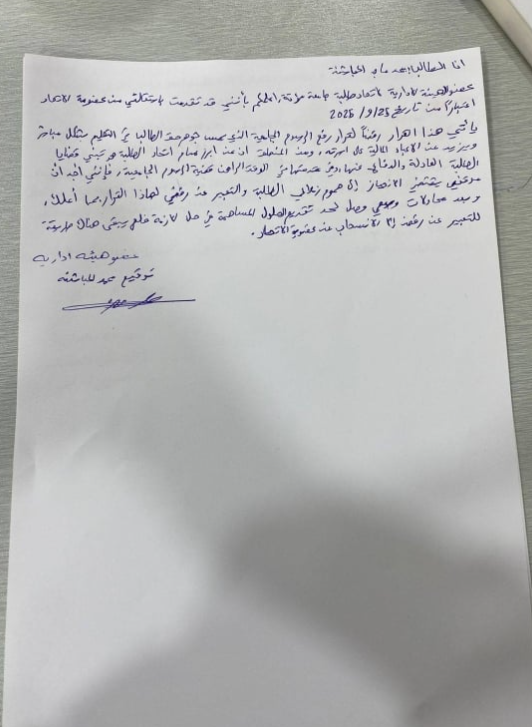 انا الطالب احمد ماجد الخباشنة
عضو الهيئة الادارية لاتحاد طلبة جامعة مؤتة، اعلمكم بأنني قد تقدمت باستقالتي من عضوية الاتحاد
اعتبارًا من تاريخ 2025/9/25
يأتي هذا القرار رفضًا لقرار رفع الرسوم الجامعية الذي يمس حق الطالب في التعليم بشكل مباشر
ويزيد من الاعباء المالية على اسرته، ومن المنطلق ان من ابرز مهام اتحاد الطلبة هو تبني قضايا
الطلبة العادلة والدفاع عنها، وفي مقدمتها في الوقت الراهن قضية الرسوم الجامعية، فإنني اجد ان
موقفي يقتضي الانحياز إلى هموم زملائي الطلبة والتعبير عن رفضي لهذا القرار بما أملك،
وبعد محاولات وسعي وصل لحد تقديم الحلول للمساهمة في حل الازمة فلم يبقى هناك طريقة
للتعبير عن رفضنا إلا الانسحاب من عضوية الاتحاد.
عضو هيئة ادارية
توقيع